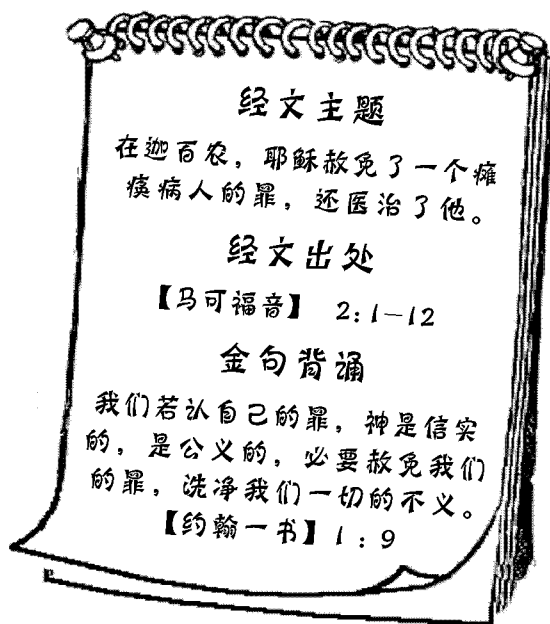 经文主题
在迦百农，耶稣赦免了一个瘫
痪病人的罪，还医治了他。
经文出处
【马可福音】 2：1—12
金句背诵
我们若认自己的罪，神是信实
的，是公义的，必要赦免我们
的罪，洗净我们一切的不义。
【约翰一书】1：9